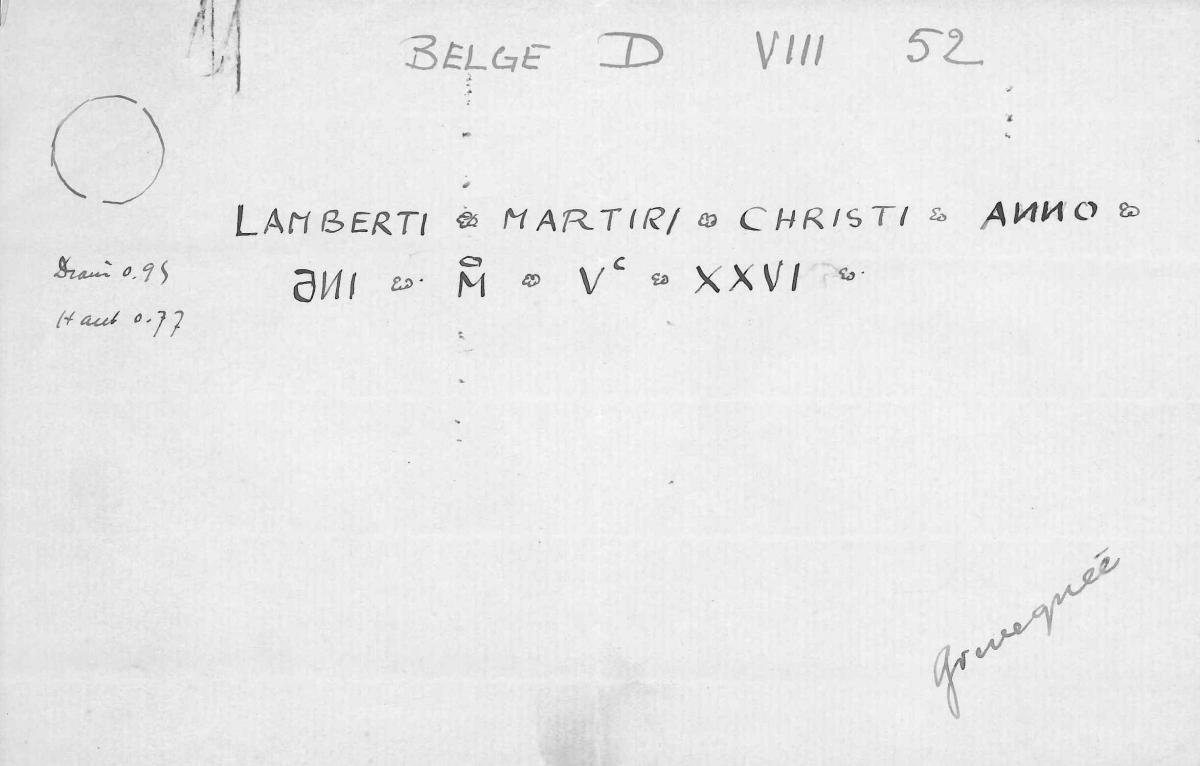 BELGE D VIII 52
LAMBERTI MARTIRI CHRISTI ANNO
DNI M̄ Vᶜ XXVI
Diam 0.95
Haut 0.77